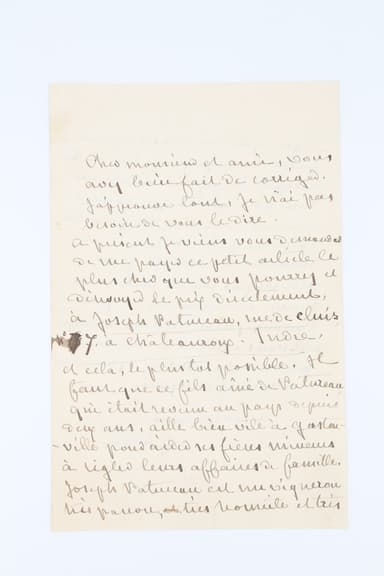 Cher monsieur et ami, vous
avez bien fait de corriger.
J'approuve tout, je n'ai pas
besoin de vous le dire.
A présent je viens vous demander
de me payer ce petit article le
plus cher que vous pourrez et
d'envoyer le prix directement,
à Joseph Patureau, rue de cluis,
37, à châteauroux. Indre.
et cela, le plus tot possible. Il
faut que ce fils aîné de Patureau
qui était revenu au pays depuis
deux ans, aille bien vite à gaston-
ville pour aider ses frères mineurs
à régler leurs affaires de famille.
Joseph Patureau est un vigneron
très pauvre, très honnête et très